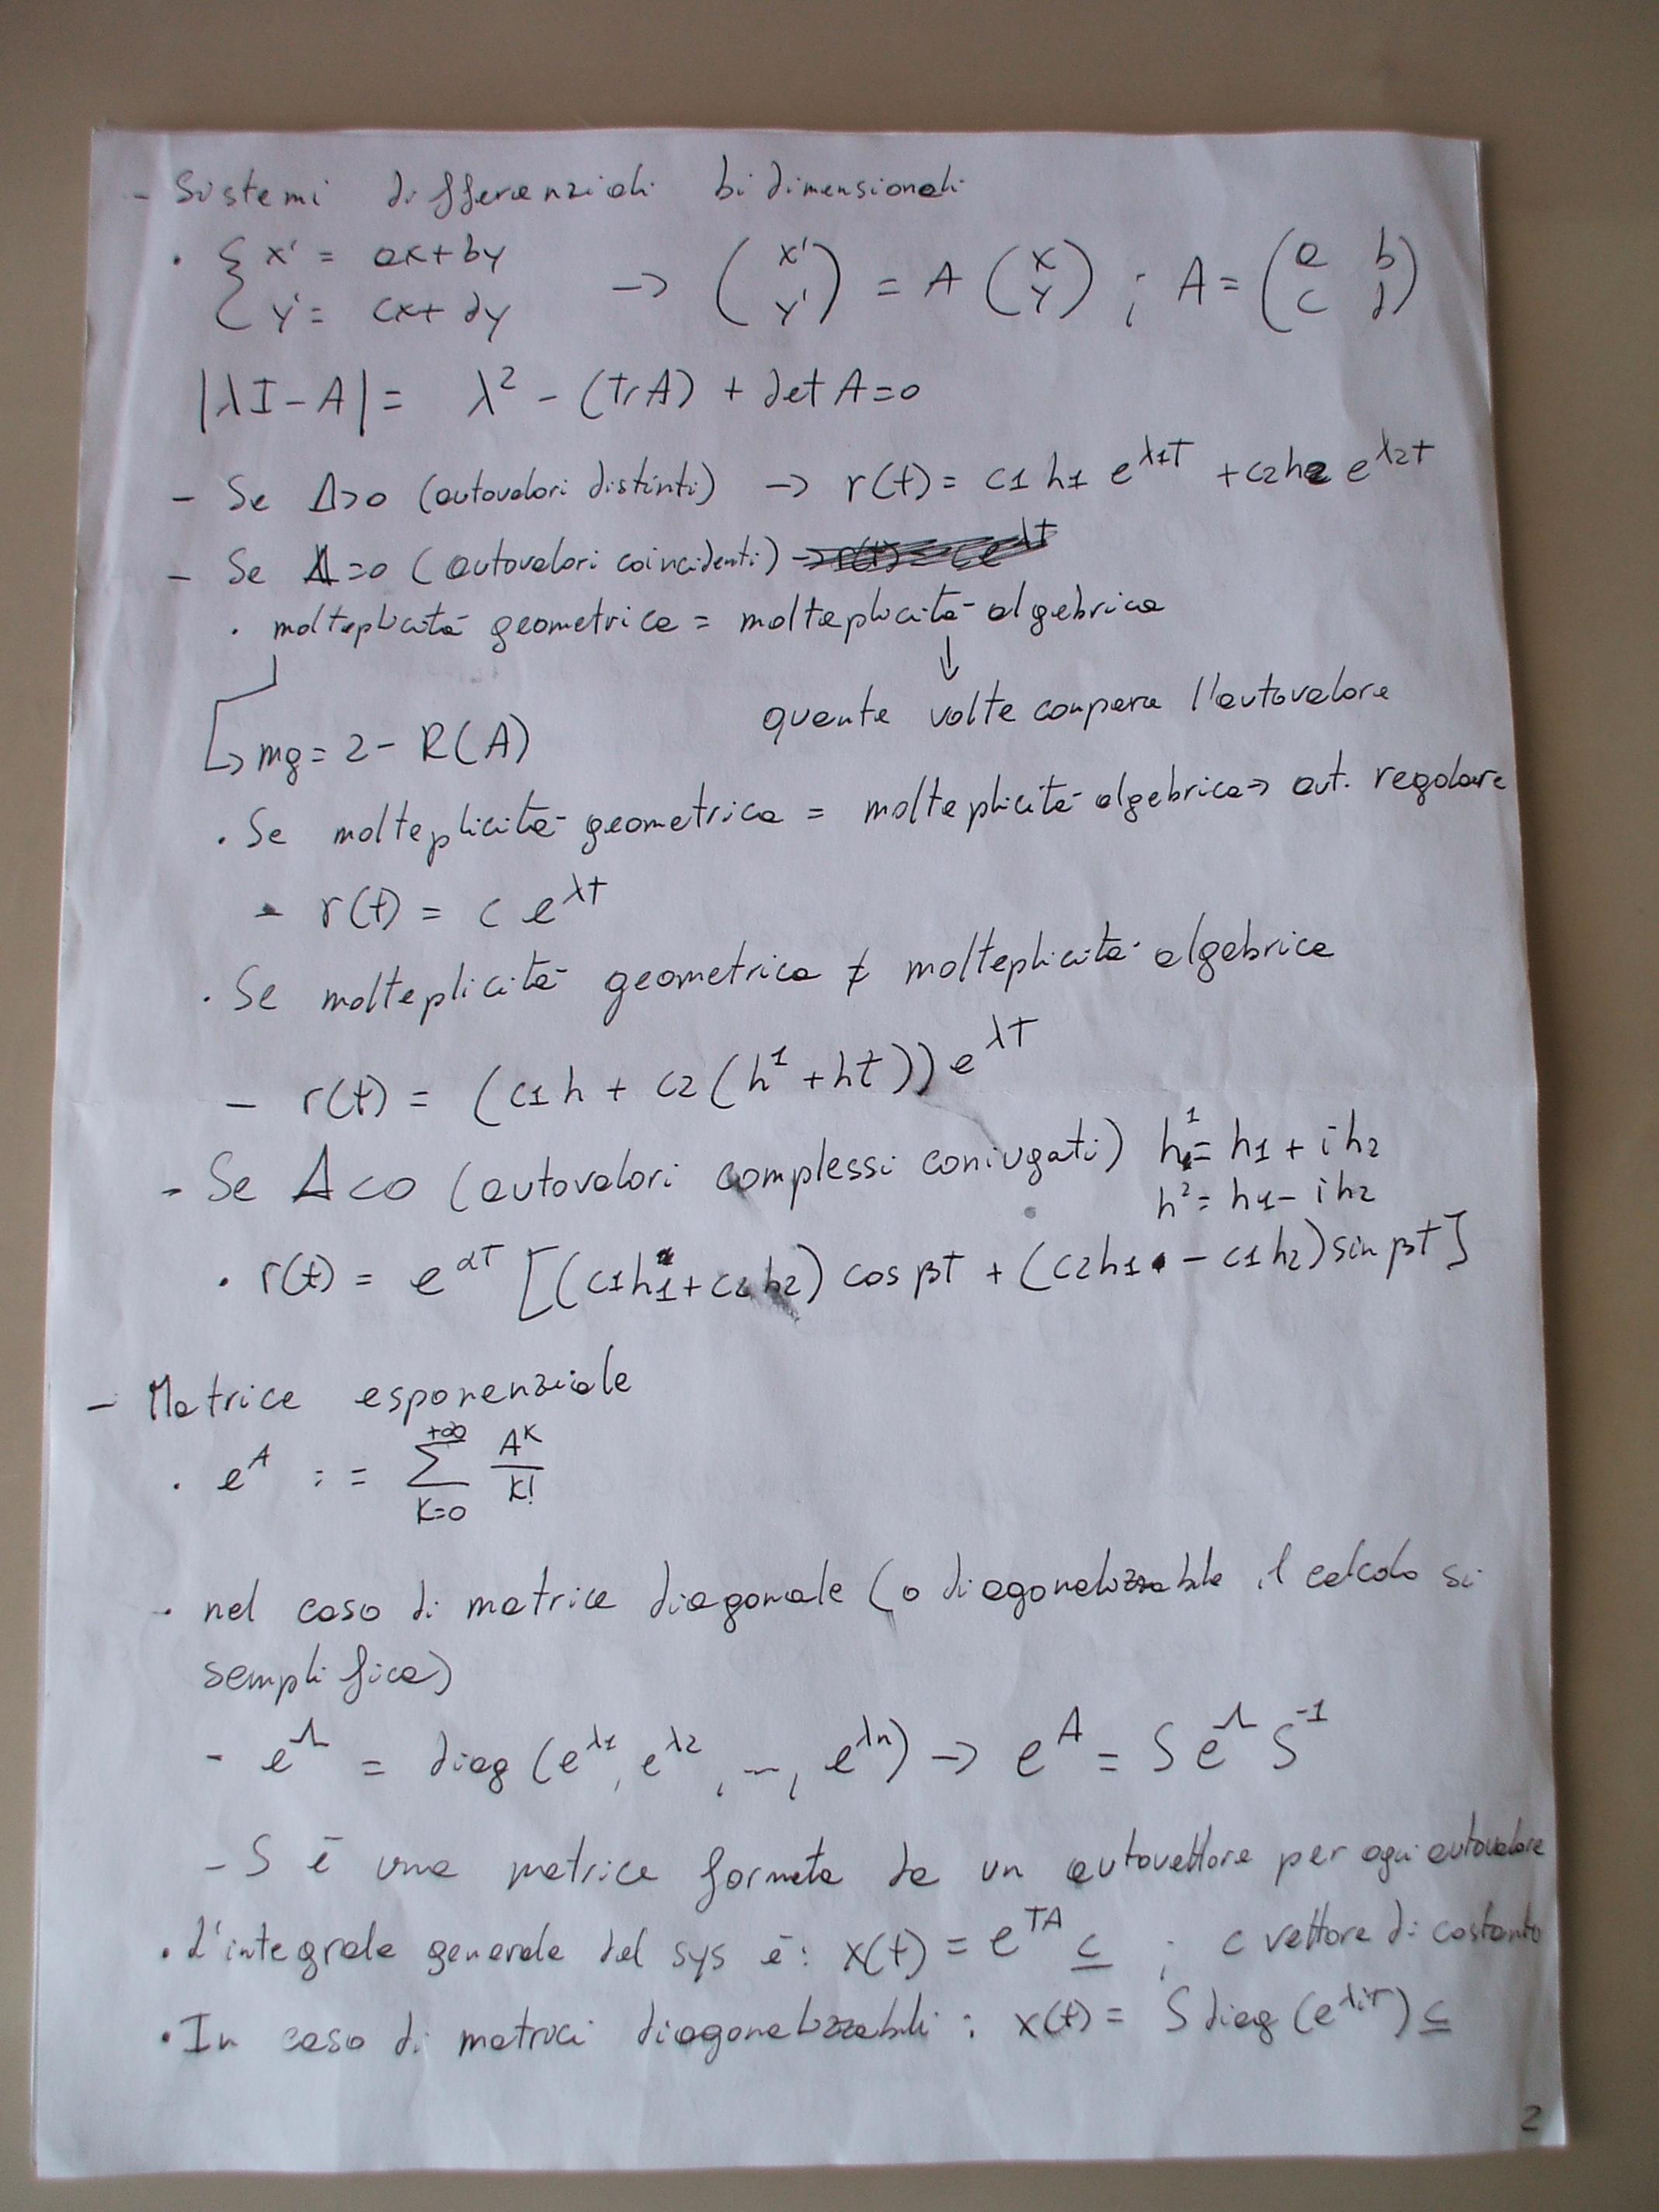 - Sistemi differenziali bidimensionali
· { x' = ax+by → (x' y') = A (x y) ; A = (a b c d)
y' = cx+dy
|λI-A| = λ² - (TrA) + det A = 0
- Se Δ>0 (autovalori distinti) → r(t) = c1 h1 e^λ1t + c2 h2 e^λ2t
- Se Δ=0 (autovalori coincidenti)
· molteplicità geometrica = molteplicità algebrica
↓
quante volte compare l'autovalore
↳ mg = 2 - R(A)
· Se molteplicità geometrica = molteplicità algebrica → aut. regolare
- r(t) = c e^λt
· Se molteplicità geometrica ≠ molteplicità algebrica
- r(t) = (c1h + c2(h¹+ht)) e^λt
- Se Δ<0 (autovalori complessi coniugati) h¹ = h1 + i h2
h² = h1 - i h2
· r(t) = e^αt [(c1h1+c2h2) cos βt + (c2h1 - c1h2) sin βt]
- Matrice esponenziale
· e^A := Σ_{K=0}^{+∞} A^K/K!
· nel caso di matrice diagonale (o diagonalizzabile il calcolo si
semplifica)
- e^Λ = diag (e^λ1, e^λ2, ..., e^λn) → e^A = S e^Λ S^-1
- S è una matrice formata da un autovettore per ogni autovalore
· L'integrale generale del sys è: x(t) = e^tA c ; c vettore di costanti
· In caso di matrici diagonalizzabili : x(t) = S diag (e^λit) c
2